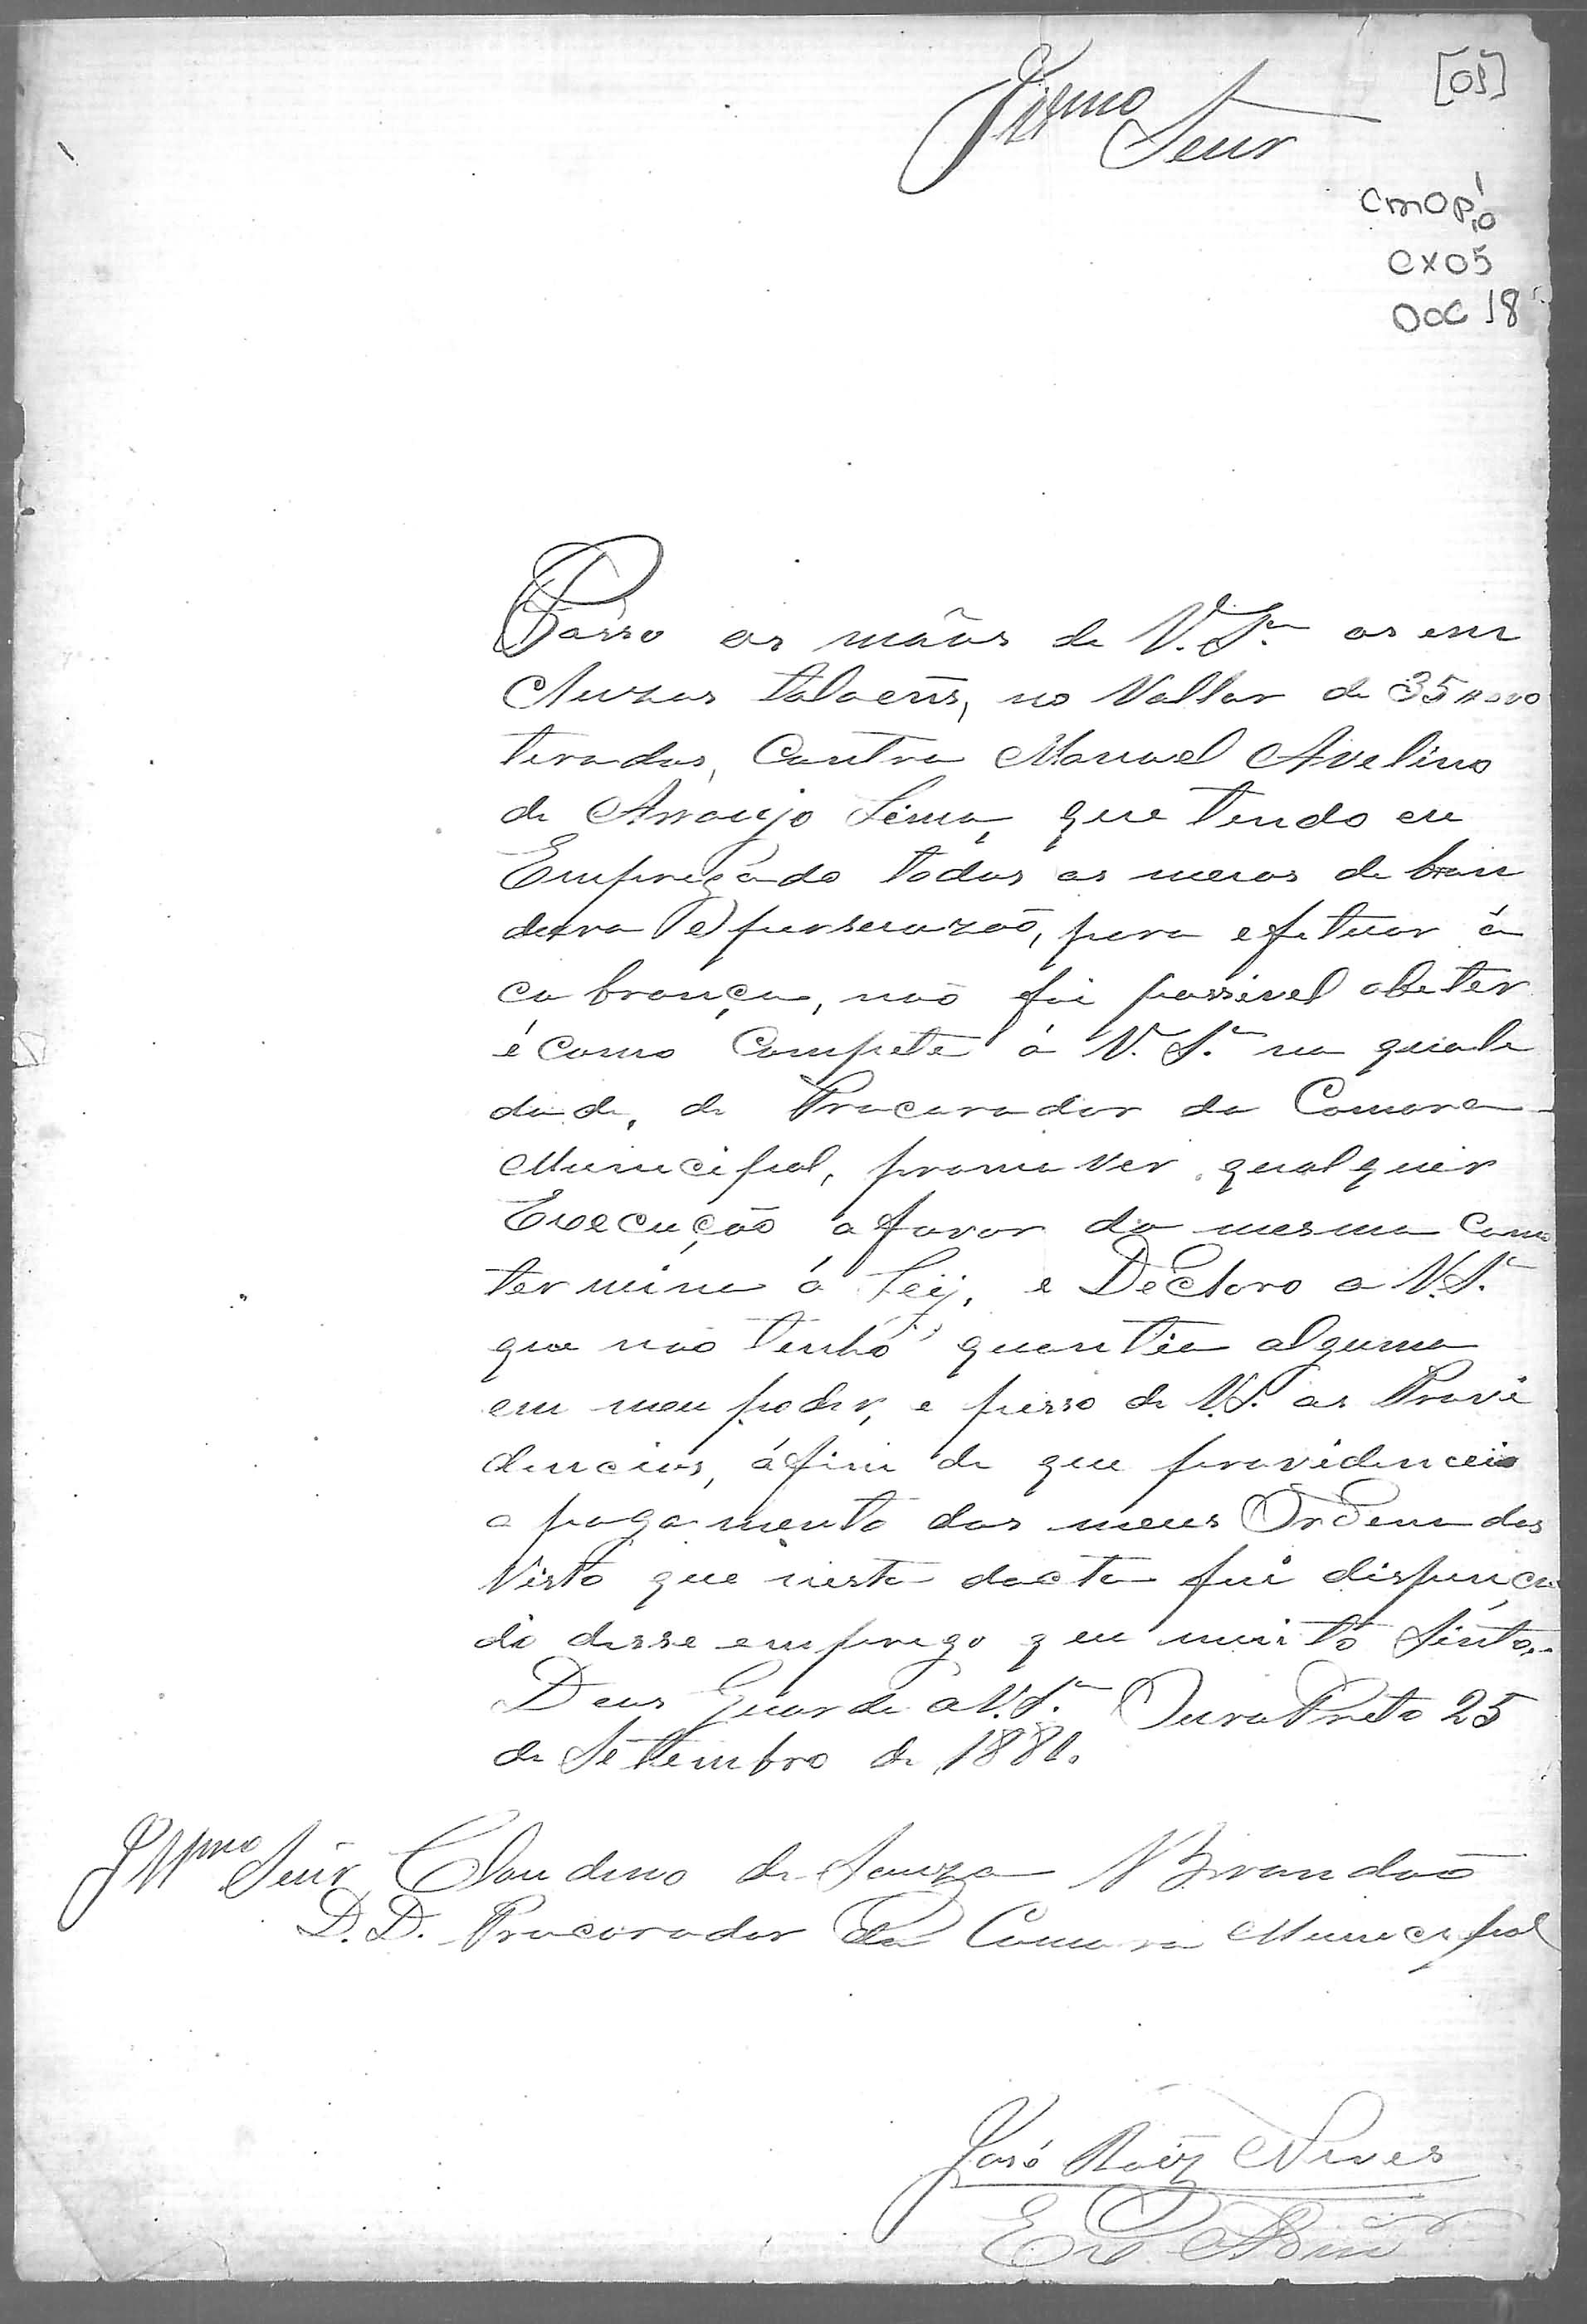 Illmo
Senr
[01]
CMOP
CX05
DOC 18
Passo as mãos de V. Sa. as en
cluzas talaens, no Vallor de 35
tiradas, Contra Manoel Avelino
de Araujo Lima, que tendo eu
Empregádo todos as meios de bran
dura e persuazaõ, para efetuar á
cobrança, naõ foi possivel obeter
é Como Compete á V. Sa. na quale
dade, de Procurador da Camara
Municipal, promu ver qualquer
Execução a favor da mesma Como
termina á Leij, e Declaro a V. Sa.
que nao tenho quantia alguma
em meu poder, e pesso de V. S. as Provi
dencias, áfim de que providenceie
o pagamento dos meus Ordenados
Visto que nesta dacta fui dispença
do desse emprego qeu muito Sinto.
Deus Guarde a V. Sa. Ouro Preto 25
de Setembro de 1881.
Illmo Senr Claudino de Souza Brandaõ
D. D. Procurador da Camara Municipal
José Roiz Neves